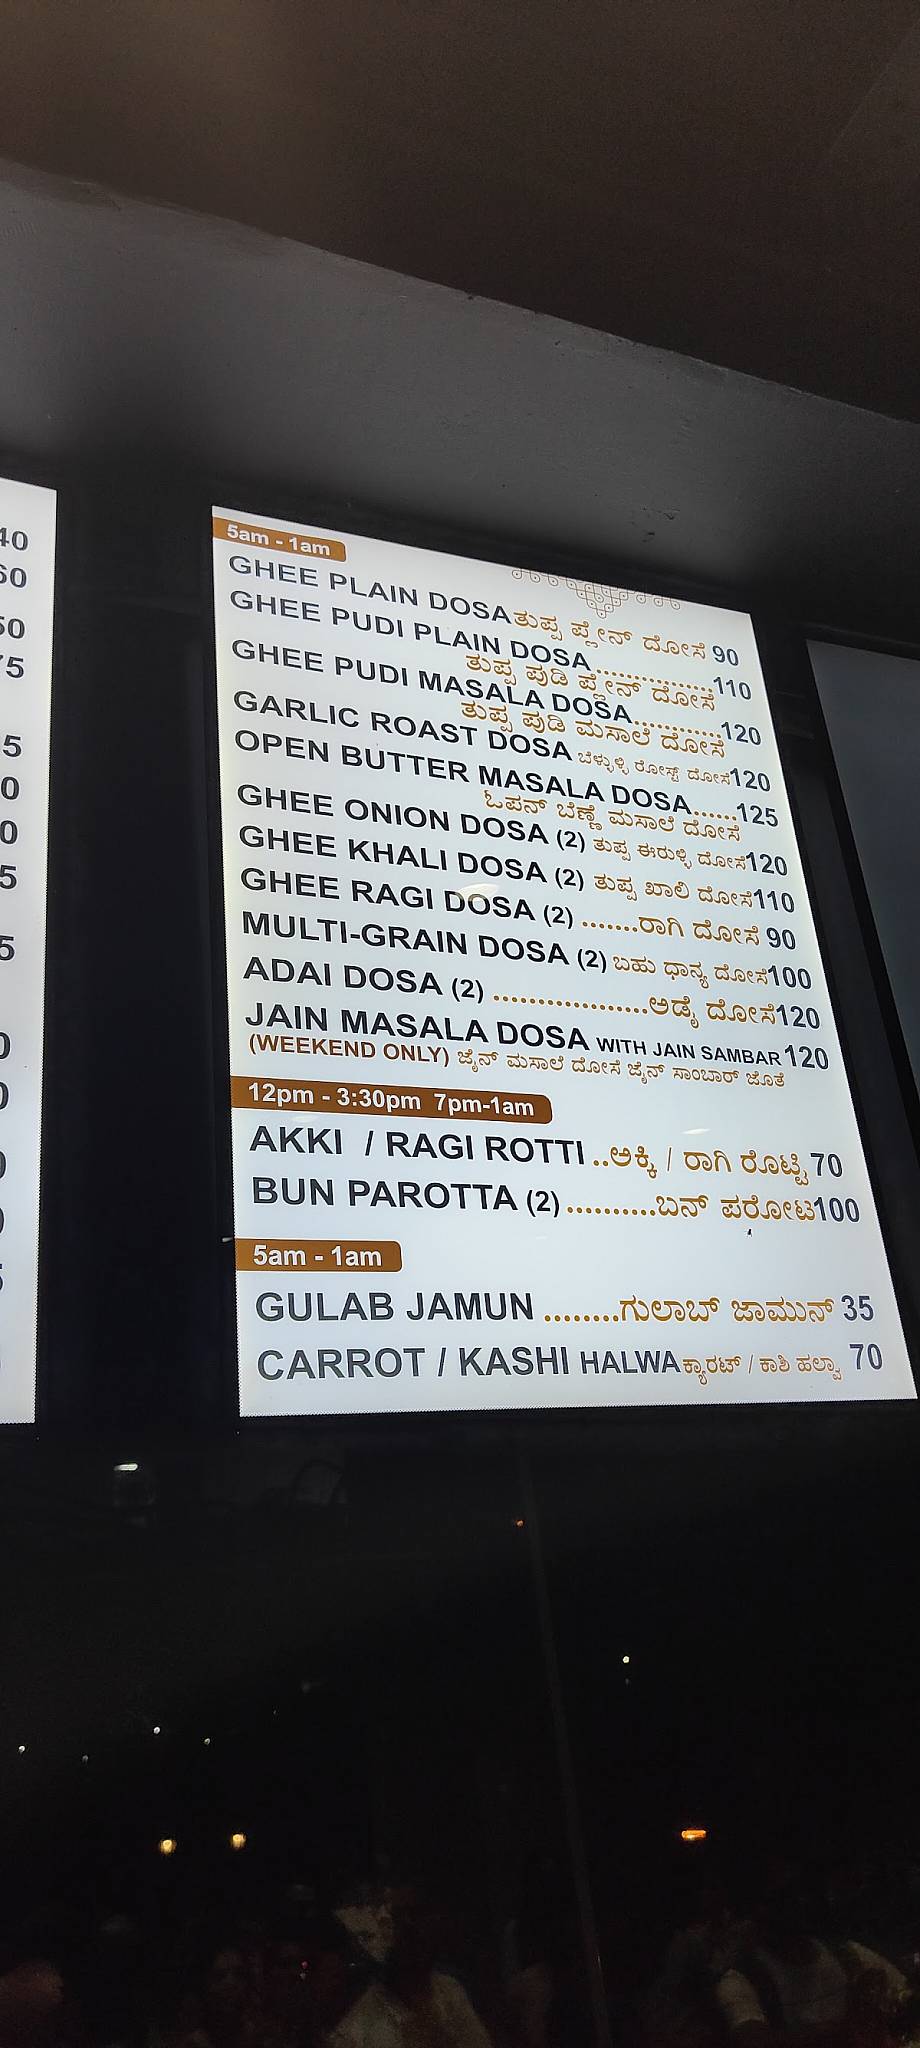 40
60
50
75
5
0
0
5
5
0
0
0
0
5
5am - 1am
GHEE PLAIN DOSA ತುಪ್ಪ ಪ್ಲೇನ್ ದೋಸೆ 90
GHEE PUDI PLAIN DOSA................110
ತುಪ್ಪ ಪುಡಿ ಪ್ಲೇನ್ ದೋಸೆ
GHEE PUDI MASALA DOSA............120
ತುಪ್ಪ ಪುಡಿ ಮಸಾಲೆ ದೋಸೆ
GARLIC ROAST DOSA ಬೆಳ್ಳುಳ್ಳಿ ರೋಸ್ಟ್ ದೋಸೆ 120
OPEN BUTTER MASALA DOSA......125
ಓಪನ್ ಬೆಣ್ಣೆ ಮಸಾಲೆ ದೋಸೆ
GHEE ONION DOSA (2) ತುಪ್ಪ ಈರುಳ್ಳಿ ದೋಸೆ 120
GHEE KHALI DOSA (2) ತುಪ್ಪ ಖಾಲಿ ದೋಸೆ 110
GHEE RAGI DOSA (2) .......ರಾಗಿ ದೋಸೆ 90
MULTI-GRAIN DOSA (2) ಬಹು ಧಾನ್ಯ ದೋಸೆ 100
ADAI DOSA (2) .................ಅಡೈ ದೋಸೆ 120
JAIN MASALA DOSA WITH JAIN SAMBAR 120
(WEEKEND ONLY) ಜೈನ್ ಮಸಾಲೆ ದೋಸೆ ಜೈನ್ ಸಾಂಬಾರ್ ಜೊತೆ
12pm - 3:30pm 7pm-1am
AKKI / RAGI ROTTI ..ಅಕ್ಕಿ / ರಾಗಿ ರೊಟ್ಟಿ 70
BUN PAROTTA (2) ..........ಬನ್ ಪರೋಟ 100
5am - 1am
GULAB JAMUN ........ಗುಲಾಬ್ ಜಾಮುನ್ 35
CARROT / KASHI HALWA ಕ್ಯಾರಟ್ / ಕಾಶಿ ಹಲ್ವಾ 70